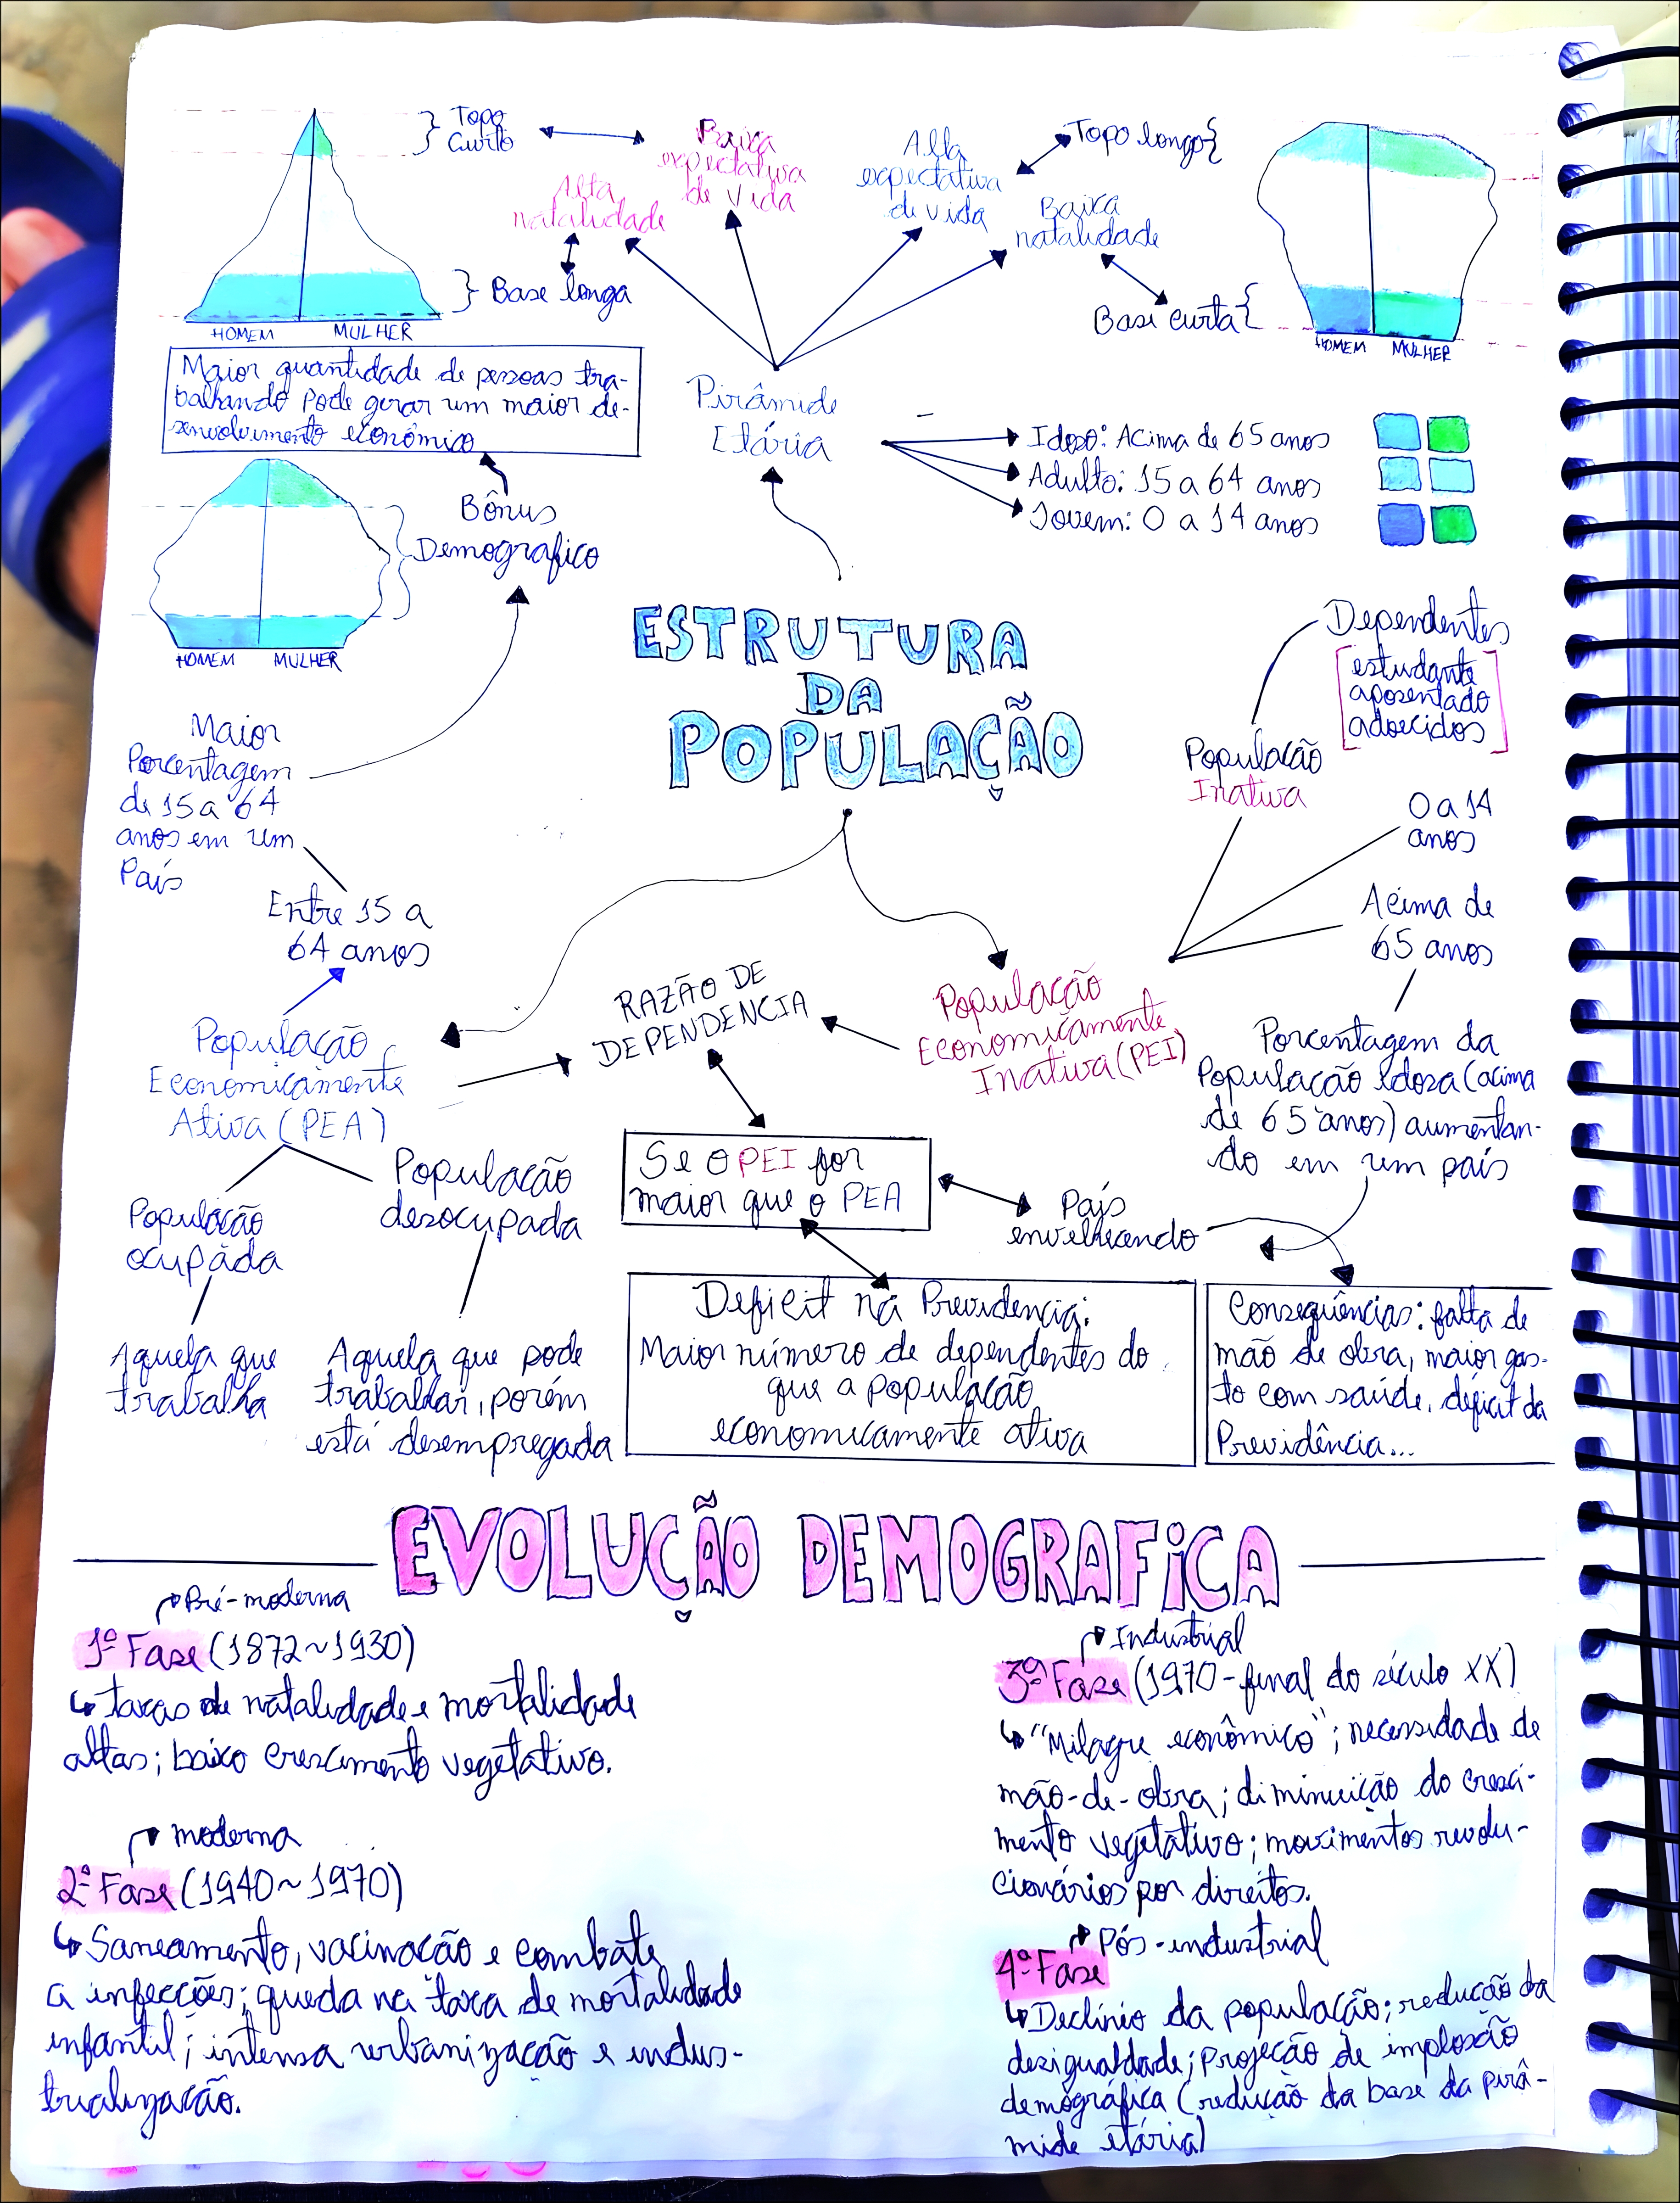 Topo
Curto
Baixa
expectativa
de vida
Alta
natalidade
Base longa
HOMEM MULHER
Alta
expectativa
de vida
Topo longo
Baixa
natalidade
Base curta
HOMEM MULHER
Maior quantidade de pessoas tra-
balhando pode gerar um maior de-
senvolvimento econômico
Pirâmide
Etária
Idoso: Acima de 65 anos
Adulto: 15 a 64 anos
Jovem: 0 a 14 anos
Bônus
Demografico
HOMEM MULHER
ESTRUTURA
DA
POPULAÇÃO
Dependentes
estudante
aposentado
adoecidos
População
Inativa
0 a 14
anos
Acima de
65 anos
Maior
Porcentagem
de 15 a 64
anos em um
País
Entre 15 a
64 anos
População
Economicamente
Ativa (PEA)
RAZÃO DE
DEPENDENCIA
População
Economicamente
Inativa (PEI)
Porcentagem da
População Idosa (acima
de 65 anos) aumentan-
do em um país
População
ocupada
População
desocupada
Se o PEI for
maior que o PEA
País
envelhecendo
Aquela que
trabalha
Aquela que pode
trabalhar, porém
está desempregada
Deficit na Previdencia:
Maior número de dependentes do
que a população
economicamente ativa
Consequências: falta de
mão de obra, maior gas-
to com saúde, déficit da
Previdência...
EVOLUÇÃO DEMOGRAFiCA
Pré-moderna
1º Fase (1872~1930)
taxas de natalidade e mortalidade
altas; baixo crescimento vegetativo.
moderna
2º Fase (1940~1970)
Saneamento, vacinação e combate
a infecções; queda na taxa de mortalidade
infantil; intensa urbanização e indus-
trialização.
Industrial
3º Fase (1970-final do século XX)
"Milagre econômico"; necessidade de
mão-de-obra; diminuição do cresci-
mento vegetativo; movimentos revolu-
cionários por direitos.
Pós-industrial
4º Fase
Declínio da população; redução da
desigualdade; projeção de implosão
demográfica (redução da base da pirâ-
mide etária)